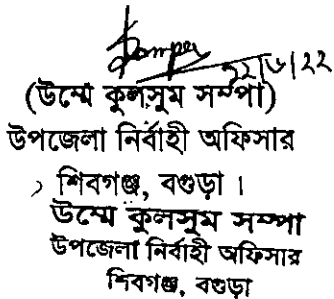 ২২|৬|২২
(উম্মে কুলসুম সম্পা)
উপজেলা নির্বাহী অফিসার
শিবগঞ্জ, বগুড়া ।
উম্মে কুলসুম সম্পা
উপজেলা নির্বাহী অফিসার
শিবগঞ্জ, বগুড়া